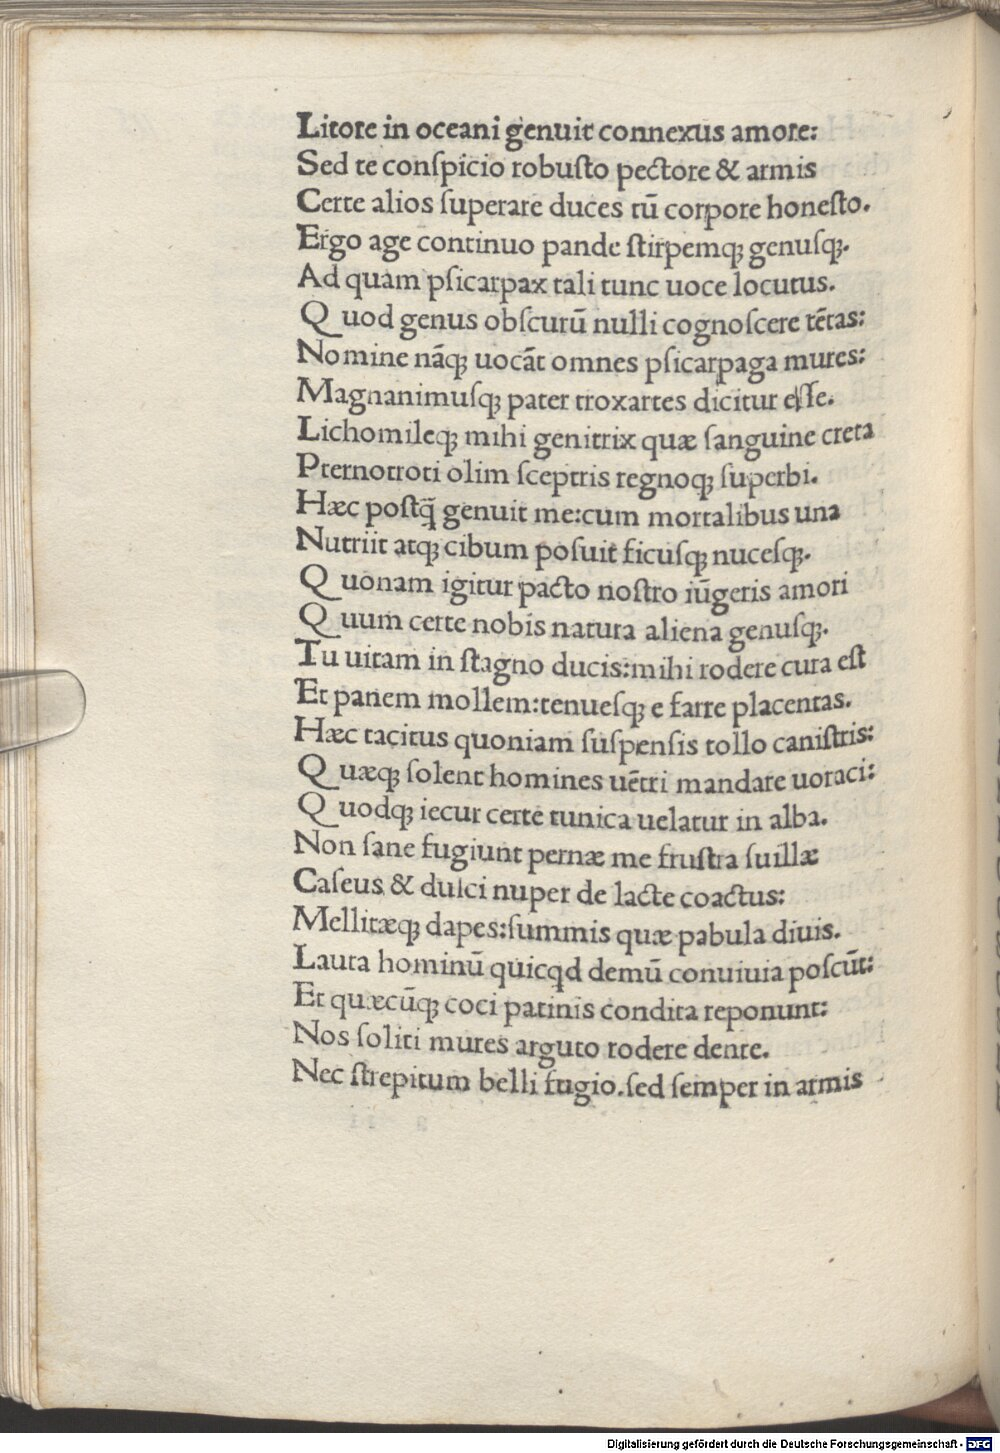 Litore in oceani genuit connexus amore:
Sed te conſpicio robuſto pectore & armis
Certe alios ſuperare duces tū corpore honeſto.
Ergo age continuo pande ſtirpemqꝫ genuſqꝫ.
Ad quam pſicarpax tali tunc uoce locutus.
Q uod genus obſcurū nulli cognoſcere tētas:
Nomine nāqꝫ uocāt omnes pſicarpaga mures:
Magnanimuſqꝫ pater troxartes dicitur eſſe.
Lichomileqꝫ mihi genitrix quæ ſanguine creta
Pternotroti olim ſceptris regnoqꝫ ſuperbi.
Hæc poſtq̄ genuit me:cum mortalibus una
Nutriit atqꝫ cibum poſuit ficuſqꝫ nuceſqꝫ.
Q uonam igitur pacto noſtro iūgeris amori
Q uum certe nobis natura aliena genuſqꝫ.
Tu uitam in ſtagno ducis:mihi rodere cura eſt
Et panem mollem:tenueſqꝫ e farre placentas.
Hæc tacitus quoniam ſuſpenſis tollo caniſtris:
Q uæqꝫ ſolent homines uētri mandare uoraci:
Q uodqꝫ iecur certe tunica uelatur in alba.
Non ſane fugiunt pernæ me fruſtra ſuillæ
Caſeus & dulci nuper de lacte coactus:
Mellitæqꝫ dapes:ſummis quæ pabula diuis.
Lauta hominū quicqd demū conuiuia poſcūt:
Et quæcūqꝫ coci patinis condita reponunt:
Nos ſoliti mures arguto rodere dente.
Nec ſtrepitum belli fugio.ſed ſemper in armis
Digitalisierung gefördert durch die Deutsche Forschungsgemeinschaft - DFG